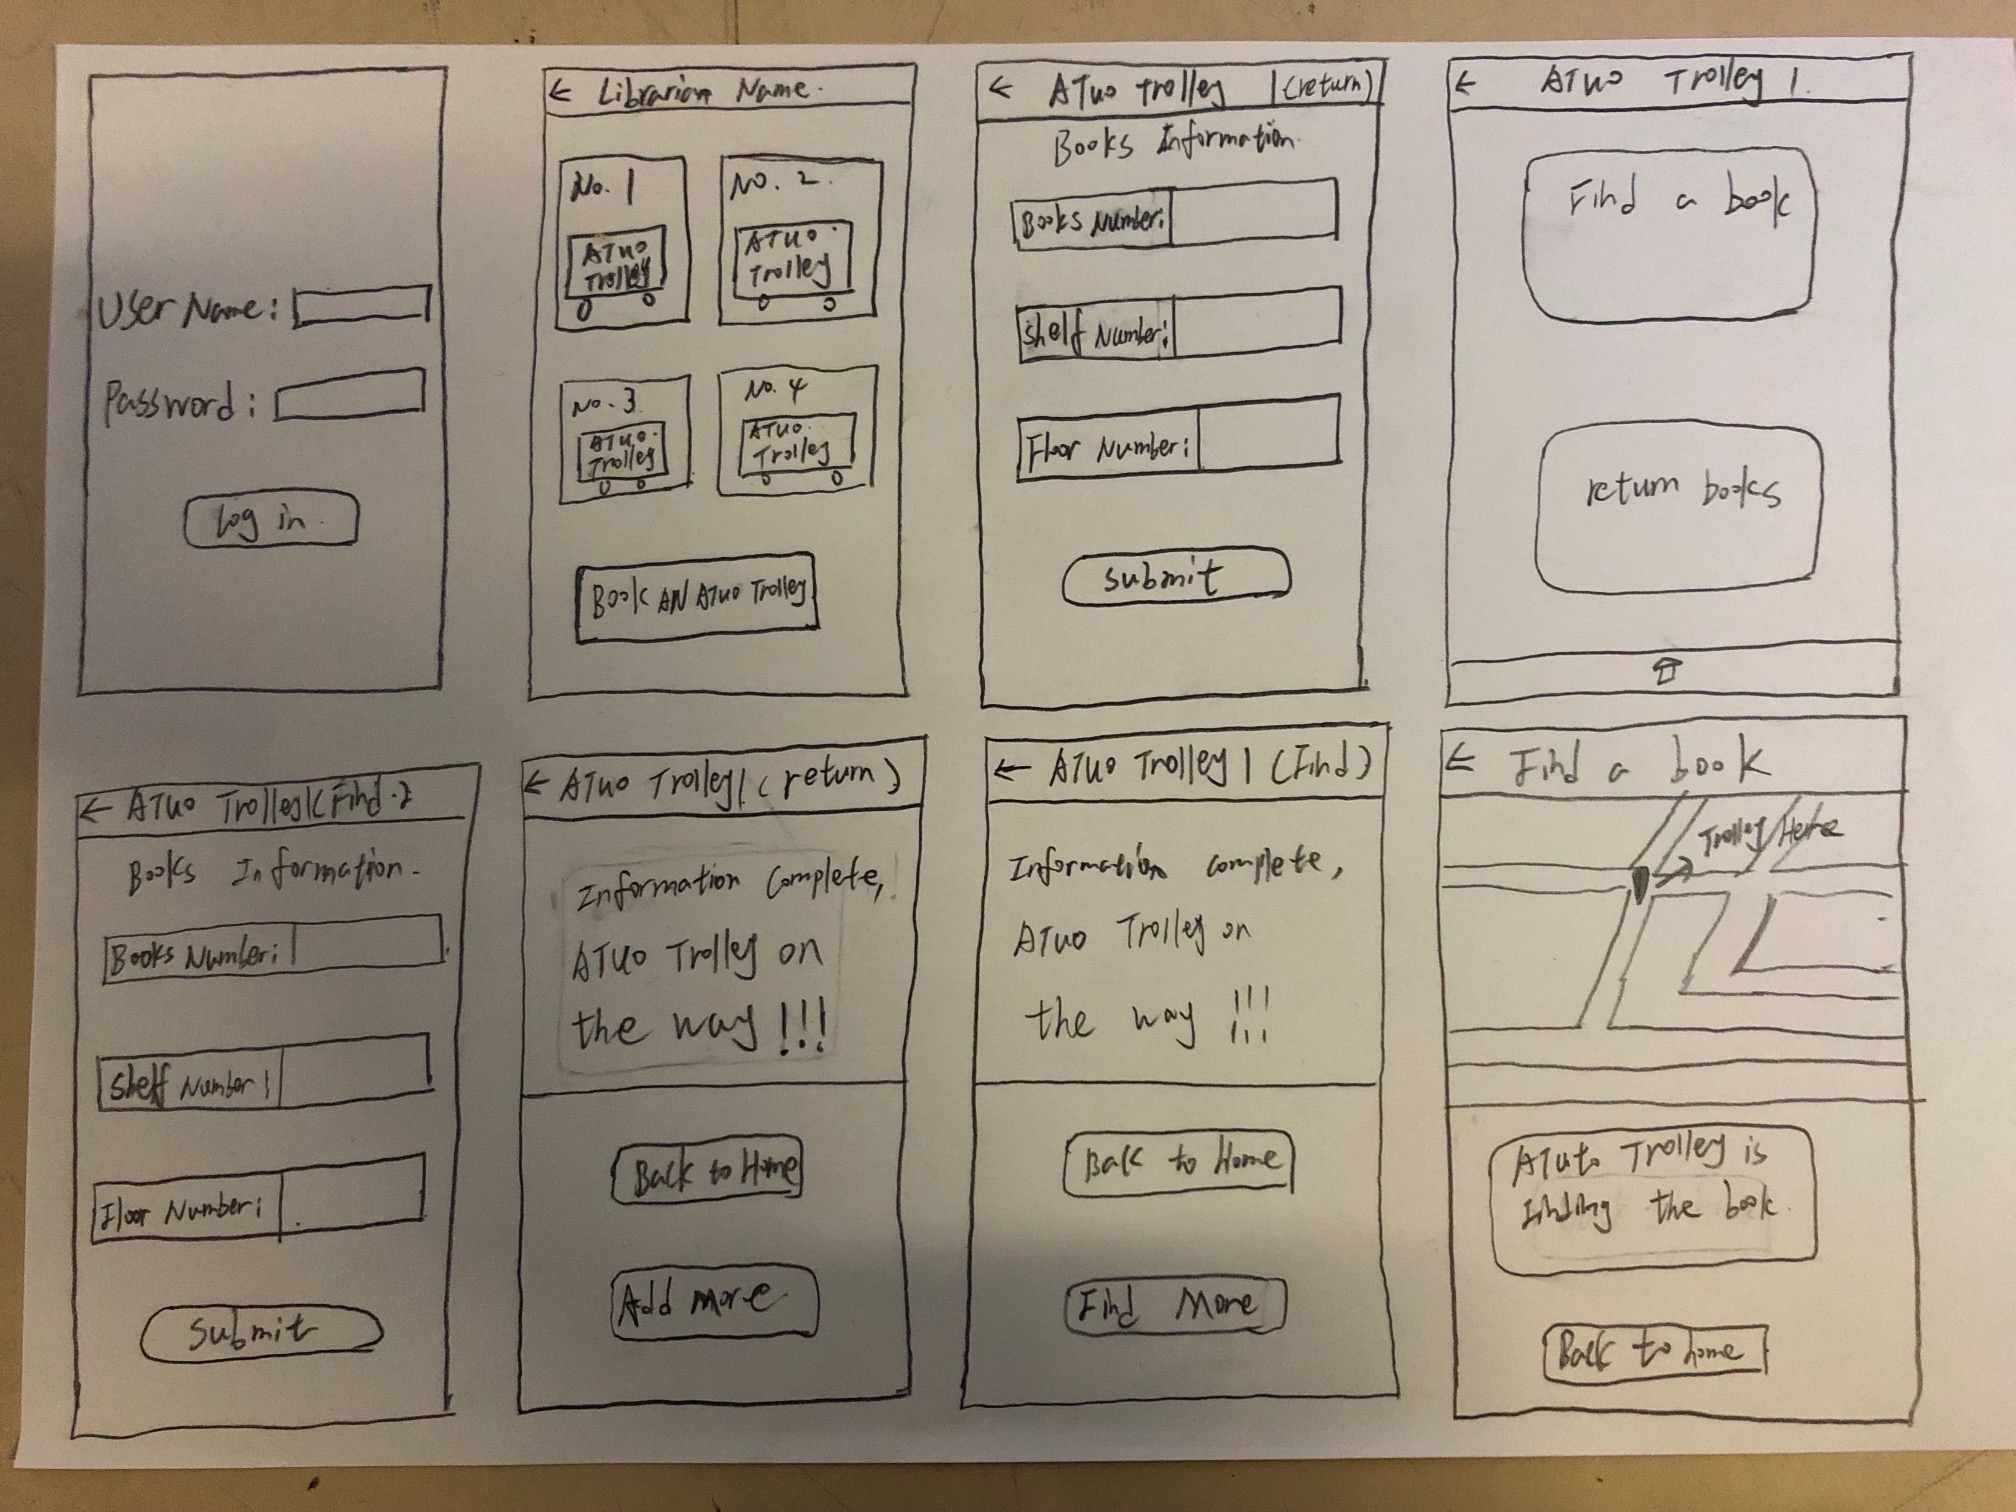 User Name:
Password:
Log in
← Librarian Name.
No. 1
ATUO
Trolley
No. 2
ATUO
Trolley
No. 3
ATUO
Trolley
No. 4
ATUO
Trolley
Book AN ATUO Trolley
← ATUO Trolley 1 (return)
Books Information.
Books Number:
Shelf Number:
Floor Number:
submit
← ATUO Trolley 1.
Find a book
return books
← ATUO Trolley
Books Information.
Books Number:
Shelf Number:
Floor Number:
Submit
← ATUO Trolley 1 (return)
Information Complete,
ATUO Trolley on
the way !!!
Back to Home
Add More
← ATUO Trolley 1 (Find)
Information complete,
ATUO Trolley on
the way !!!
Back to Home
Find More
← Find a book
Trolley Here
ATuto Trolley is
finding the book.
Back to home